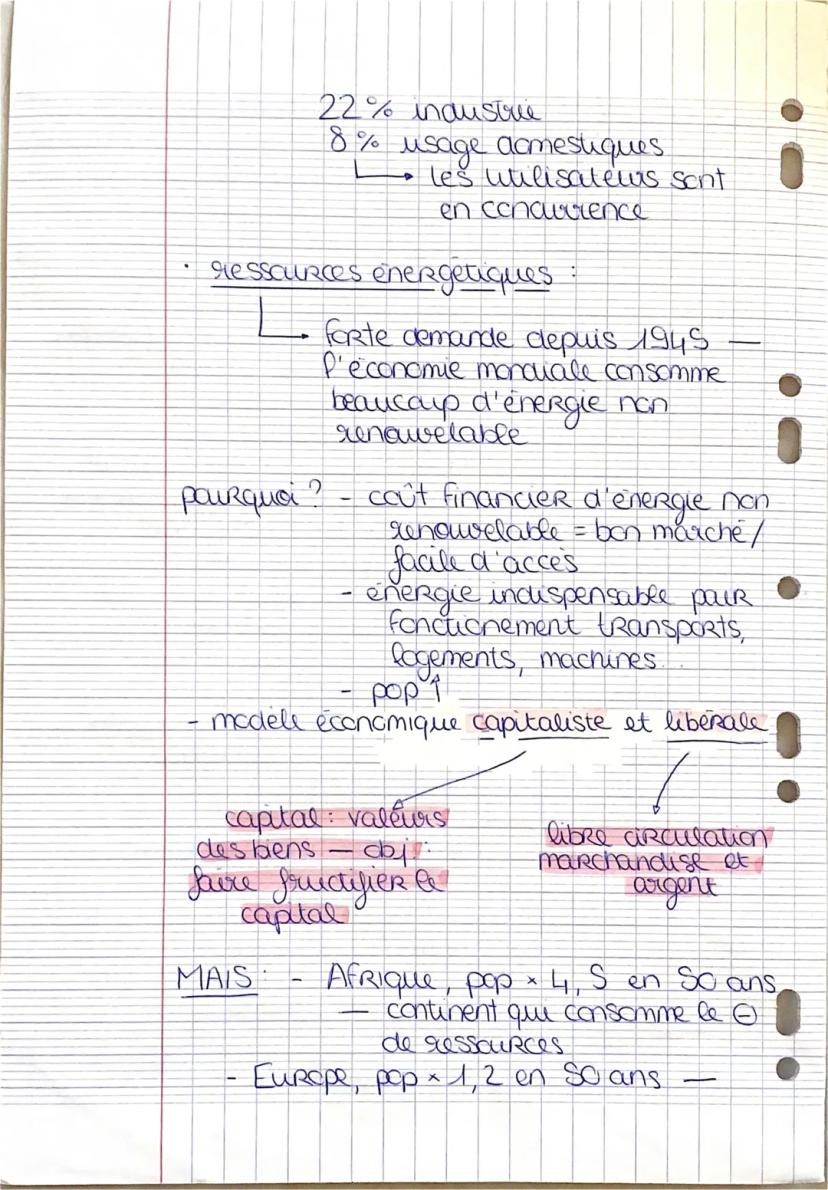 22% industrie
8% usage domestiques
↳ les utilisateurs sont
en concurrence
· ressources énergétiques :
↳ forte demande depuis 1945 —
l'économie mondiale consomme
beaucoup d'énergie non
renouvelable
pourquoi ? - coût financier d'énergie non
renouvelable = bon marché /
facile d'accès
- énergie indispensable pour
fonctionement transports,
logements, machines...
- pop ↑
- modèle économique capitaliste et libérale
capital : valeurs
des biens — obj :
faire fructifier le
capital
libre circulation
marchandise et
argent
MAIS : - Afrique, pop × 4,5 en 50 ans
— continent qui consomme le ⊖
de ressources
- Europe, pop × 1,2 en 50 ans —